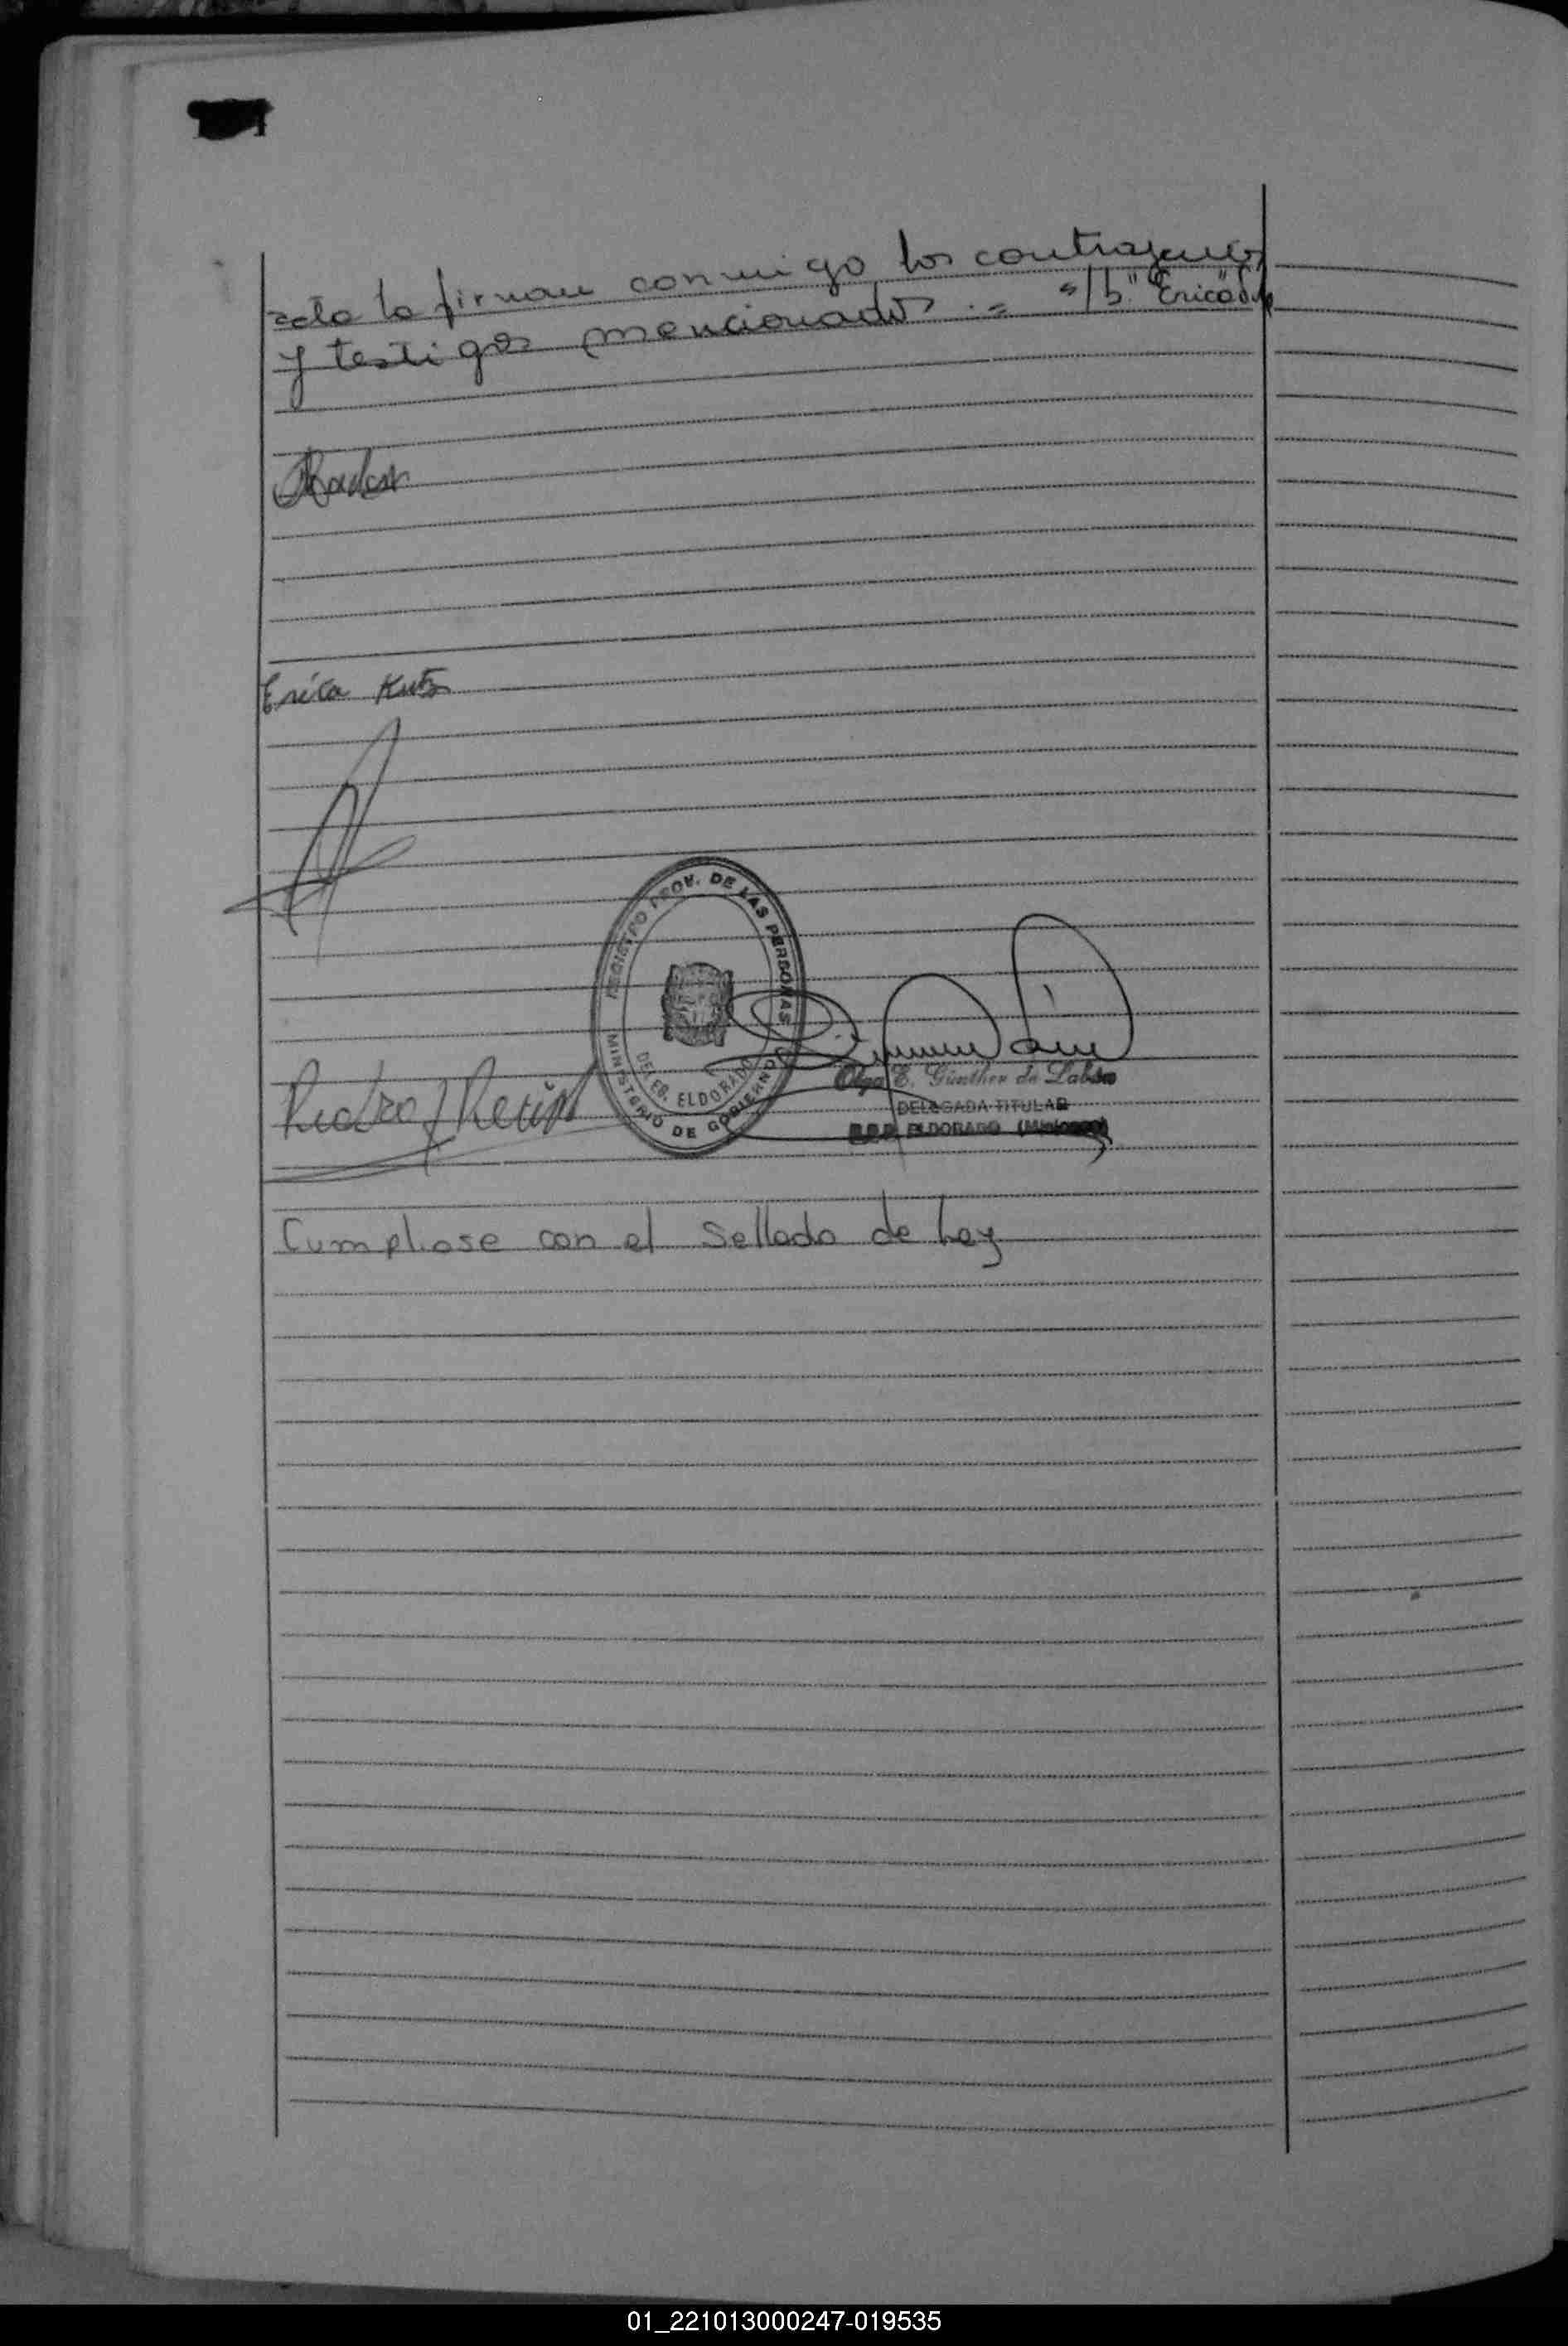 acta la firman conmigo los contrayentes
y testigos mencionados .= s/b "Erica"
Erica Kutz
REGISTRO PROV. DE LAS PERSONAS
MINISTERIO DE GOBIERNO
DELEG. ELDORADO
Olga E. Günther de
DELEGADA TITULAR
ELDORADO (Misiones)
Pedro
Cumpliose con el Sellado de Ley
01_221013000247-019535